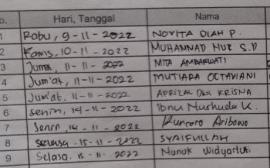 o. Hari, Tanggal Nama
1 Rabu, 9-11-2022 NOVITA DIAH P.
2 Kamis, 10-11-2022 MUHAMMAD NUR S.D
3 Jumat, 11-11-2022 MITA AMBARWATI
4 Jum'at, 11-11-2022 MUTIARA OCTAVIANI
5 Jum'at, 11-11-2022 APRIZAL DWI KRISNA
6 Senin, 14-11-2022 Ibnu Nurhuda K.
7 Senin, 14-11-2022 Kuncoro Aribowo
8 Selasa, 15-11-2022 SYAIFULLAH
9 Selasa, 15-11-2022 Nunuk Widyastuti